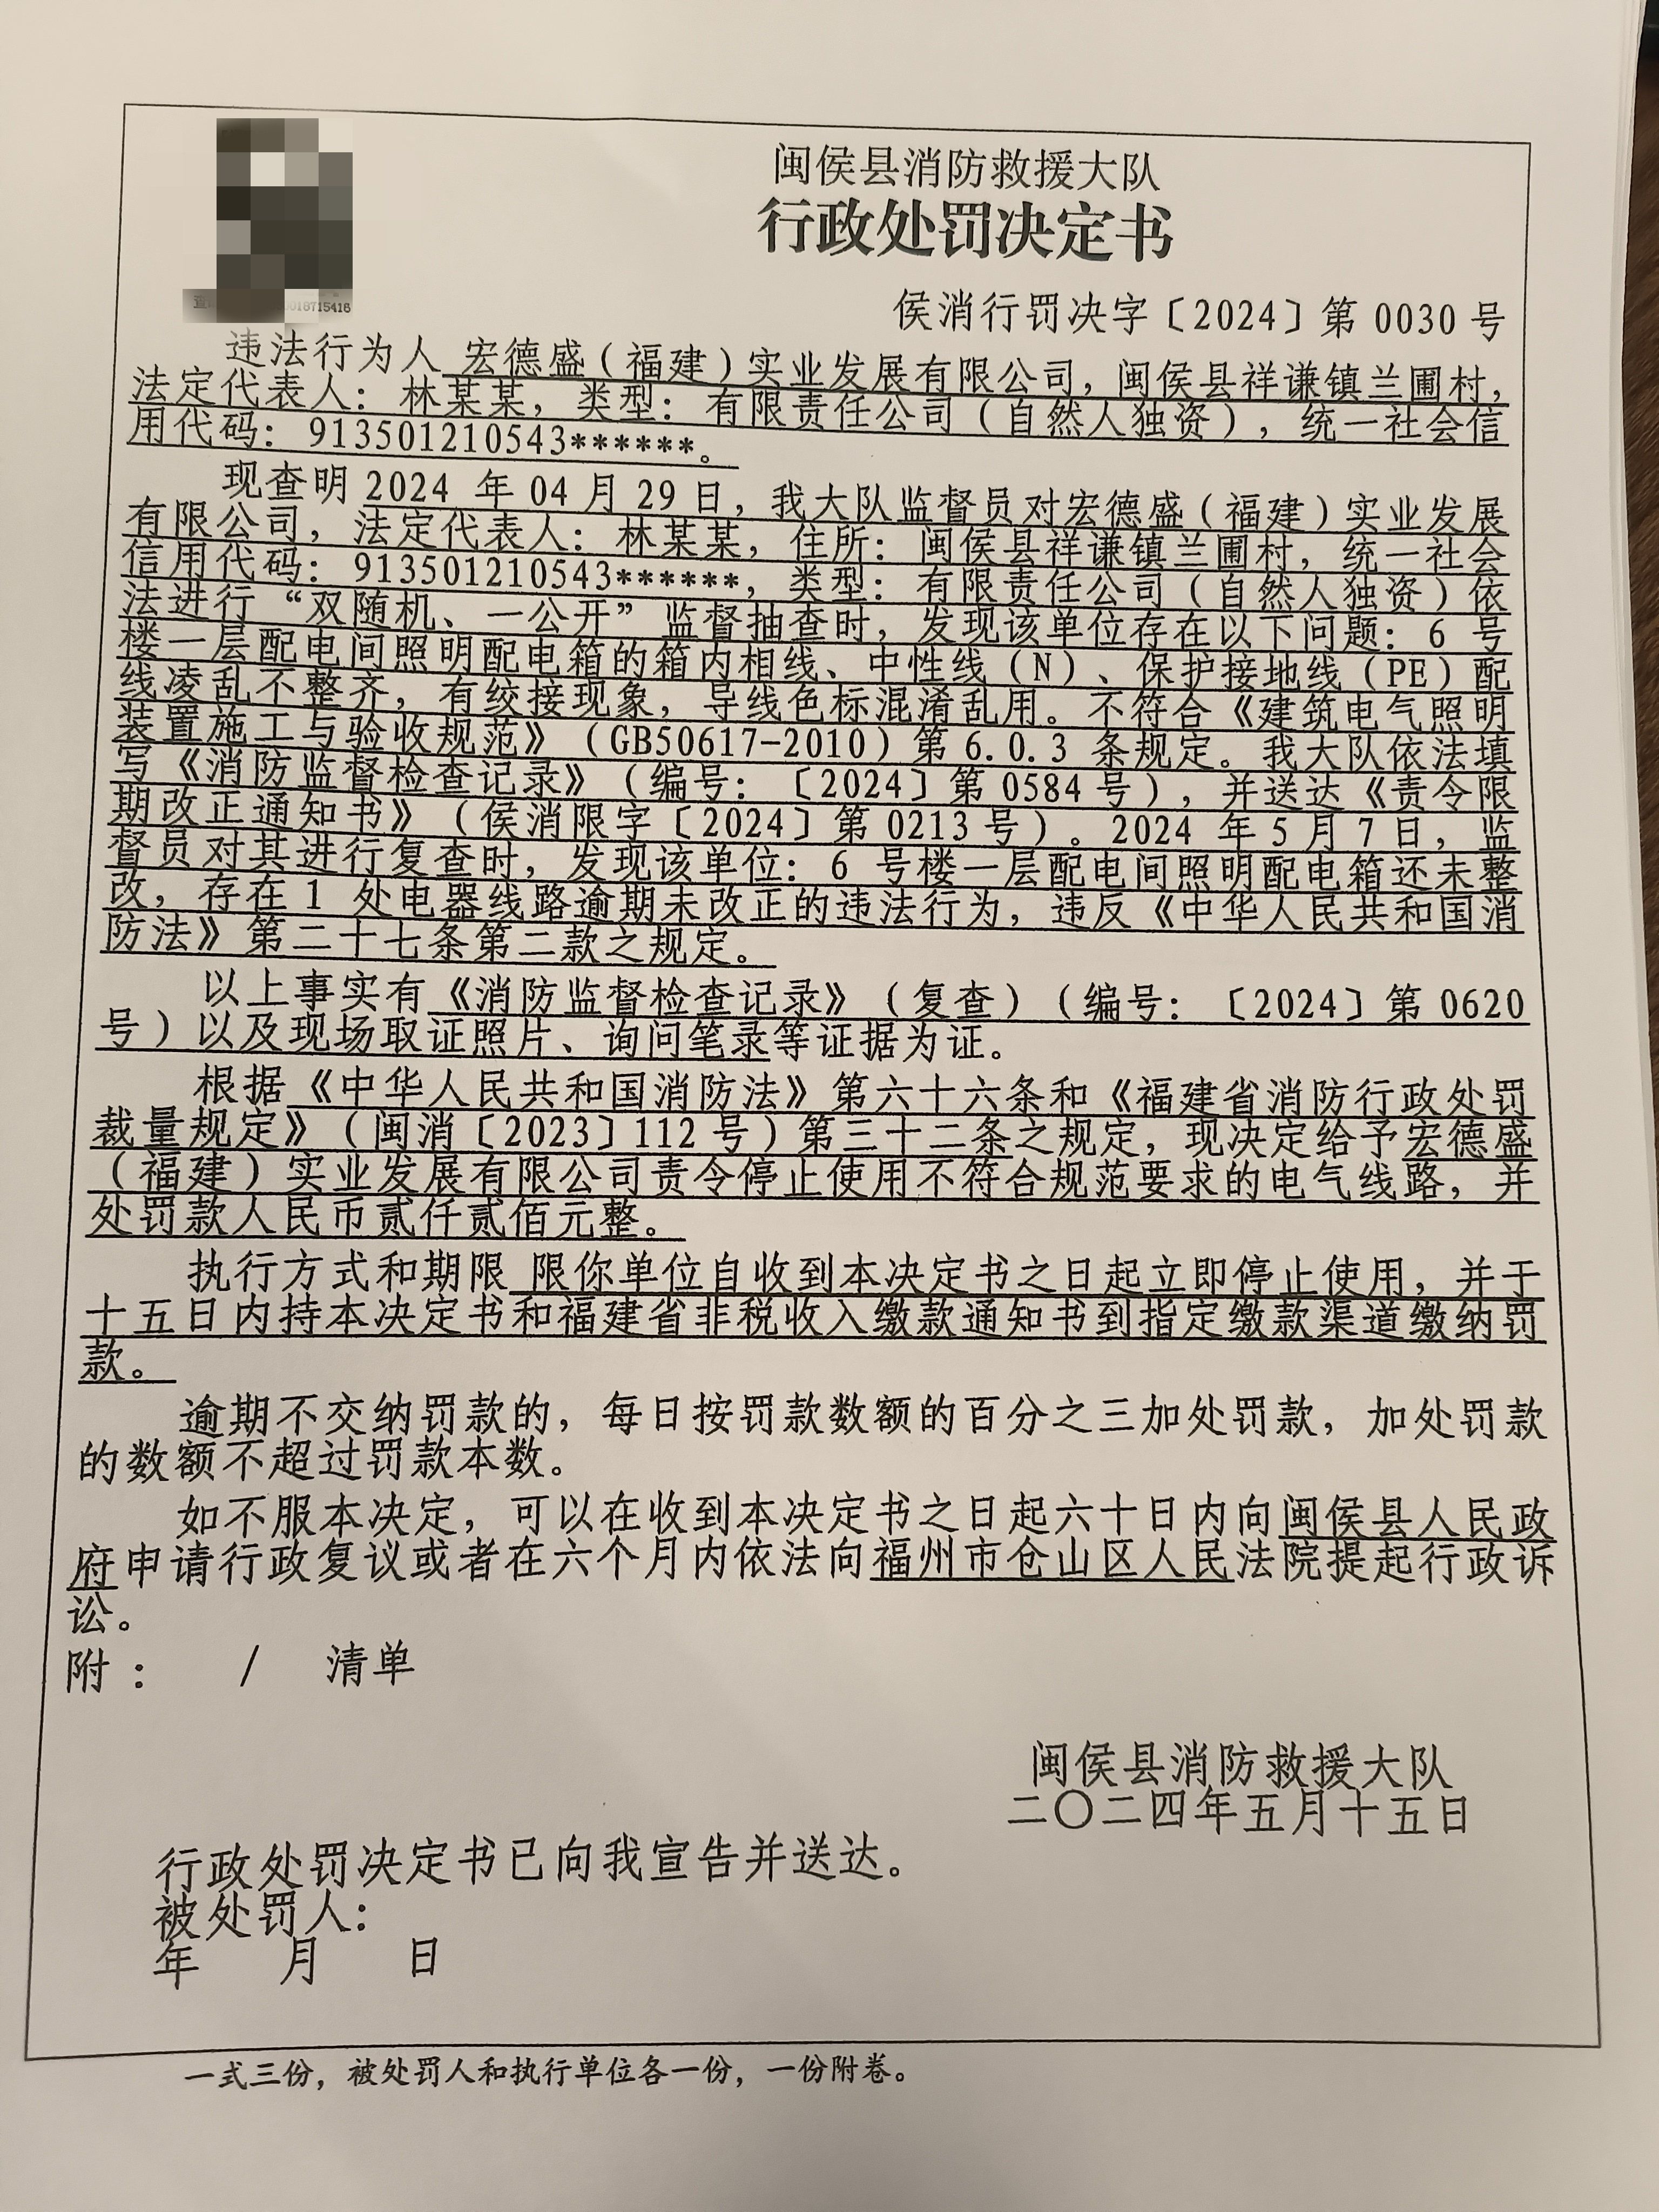 闽侯县消防救援大队
行政处罚决定书
侯消行罚决字〔2024〕第 0030 号
0018715416
违法行为人 宏德盛（福建）实业发展有限公司，闽侯县祥谦镇兰圃村，
法定代表人：林某某，类型：有限责任公司（自然人独资），统一社会信
用代码：913501210543******。
现查明 2024 年 04 月 29 日，我大队监督员对宏德盛（福建）实业发展
有限公司，法定代表人：林某某，住所：闽侯县祥谦镇兰圃村，统一社会
信用代码：913501210543******，类型：有限责任公司（自然人独资）依
法进行“双随机、一公开”监督抽查时，发现该单位存在以下问题：6 号
楼一层配电间照明配电箱的箱内相线、中性线（N）、保护接地线（PE）配
线凌乱不整齐，有绞接现象，导线色标混淆乱用。不符合《建筑电气照明
装置施工与验收规范》（GB50617-2010）第 6.0.3 条规定。我大队依法填
写《消防监督检查记录》（编号：〔2024〕第 0584 号），并送达《责令限
期改正通知书》（侯消限字〔2024〕第 0213 号）。2024 年 5 月 7 日，监
督员对其进行复查时，发现该单位：6 号楼一层配电间照明配电箱还未整
改，存在 1 处电器线路逾期未改正的违法行为，违反《中华人民共和国消
防法》第二十七条第二款之规定。
以上事实有《消防监督检查记录》（复查）（编号：〔2024〕第 0620
号）以及现场取证照片、询问笔录等证据为证。
根据《中华人民共和国消防法》第六十六条和《福建省消防行政处罚
裁量规定》（闽消〔2023〕112 号）第三十二条之规定，现决定给予宏德盛
（福建）实业发展有限公司责令停止使用不符合规范要求的电气线路，并
处罚款人民币贰仟贰佰元整。
执行方式和期限 限你单位自收到本决定书之日起立即停止使用，并于
十五日内持本决定书和福建省非税收入缴款通知书到指定缴款渠道缴纳罚
款。
逾期不交纳罚款的，每日按罚款数额的百分之三加处罚款，加处罚款
的数额不超过罚款本数。
如不服本决定，可以在收到本决定书之日起六十日内向闽侯县人民政
府申请行政复议或者在六个月内依法向福州市仓山区人民法院提起行政诉
讼。
附： / 清单
闽侯县消防救援大队
二〇二四年五月十五日
行政处罚决定书已向我宣告并送达。
被处罚人：
年 月 日
一式三份，被处罚人和执行单位各一份，一份附卷。